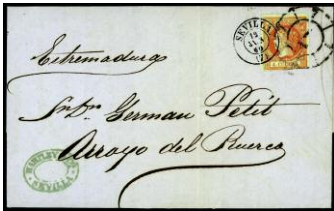 SEVILLA
Estremadura
Sr. Dn. German Petit
Arroyo del Puerco
SEVILLA